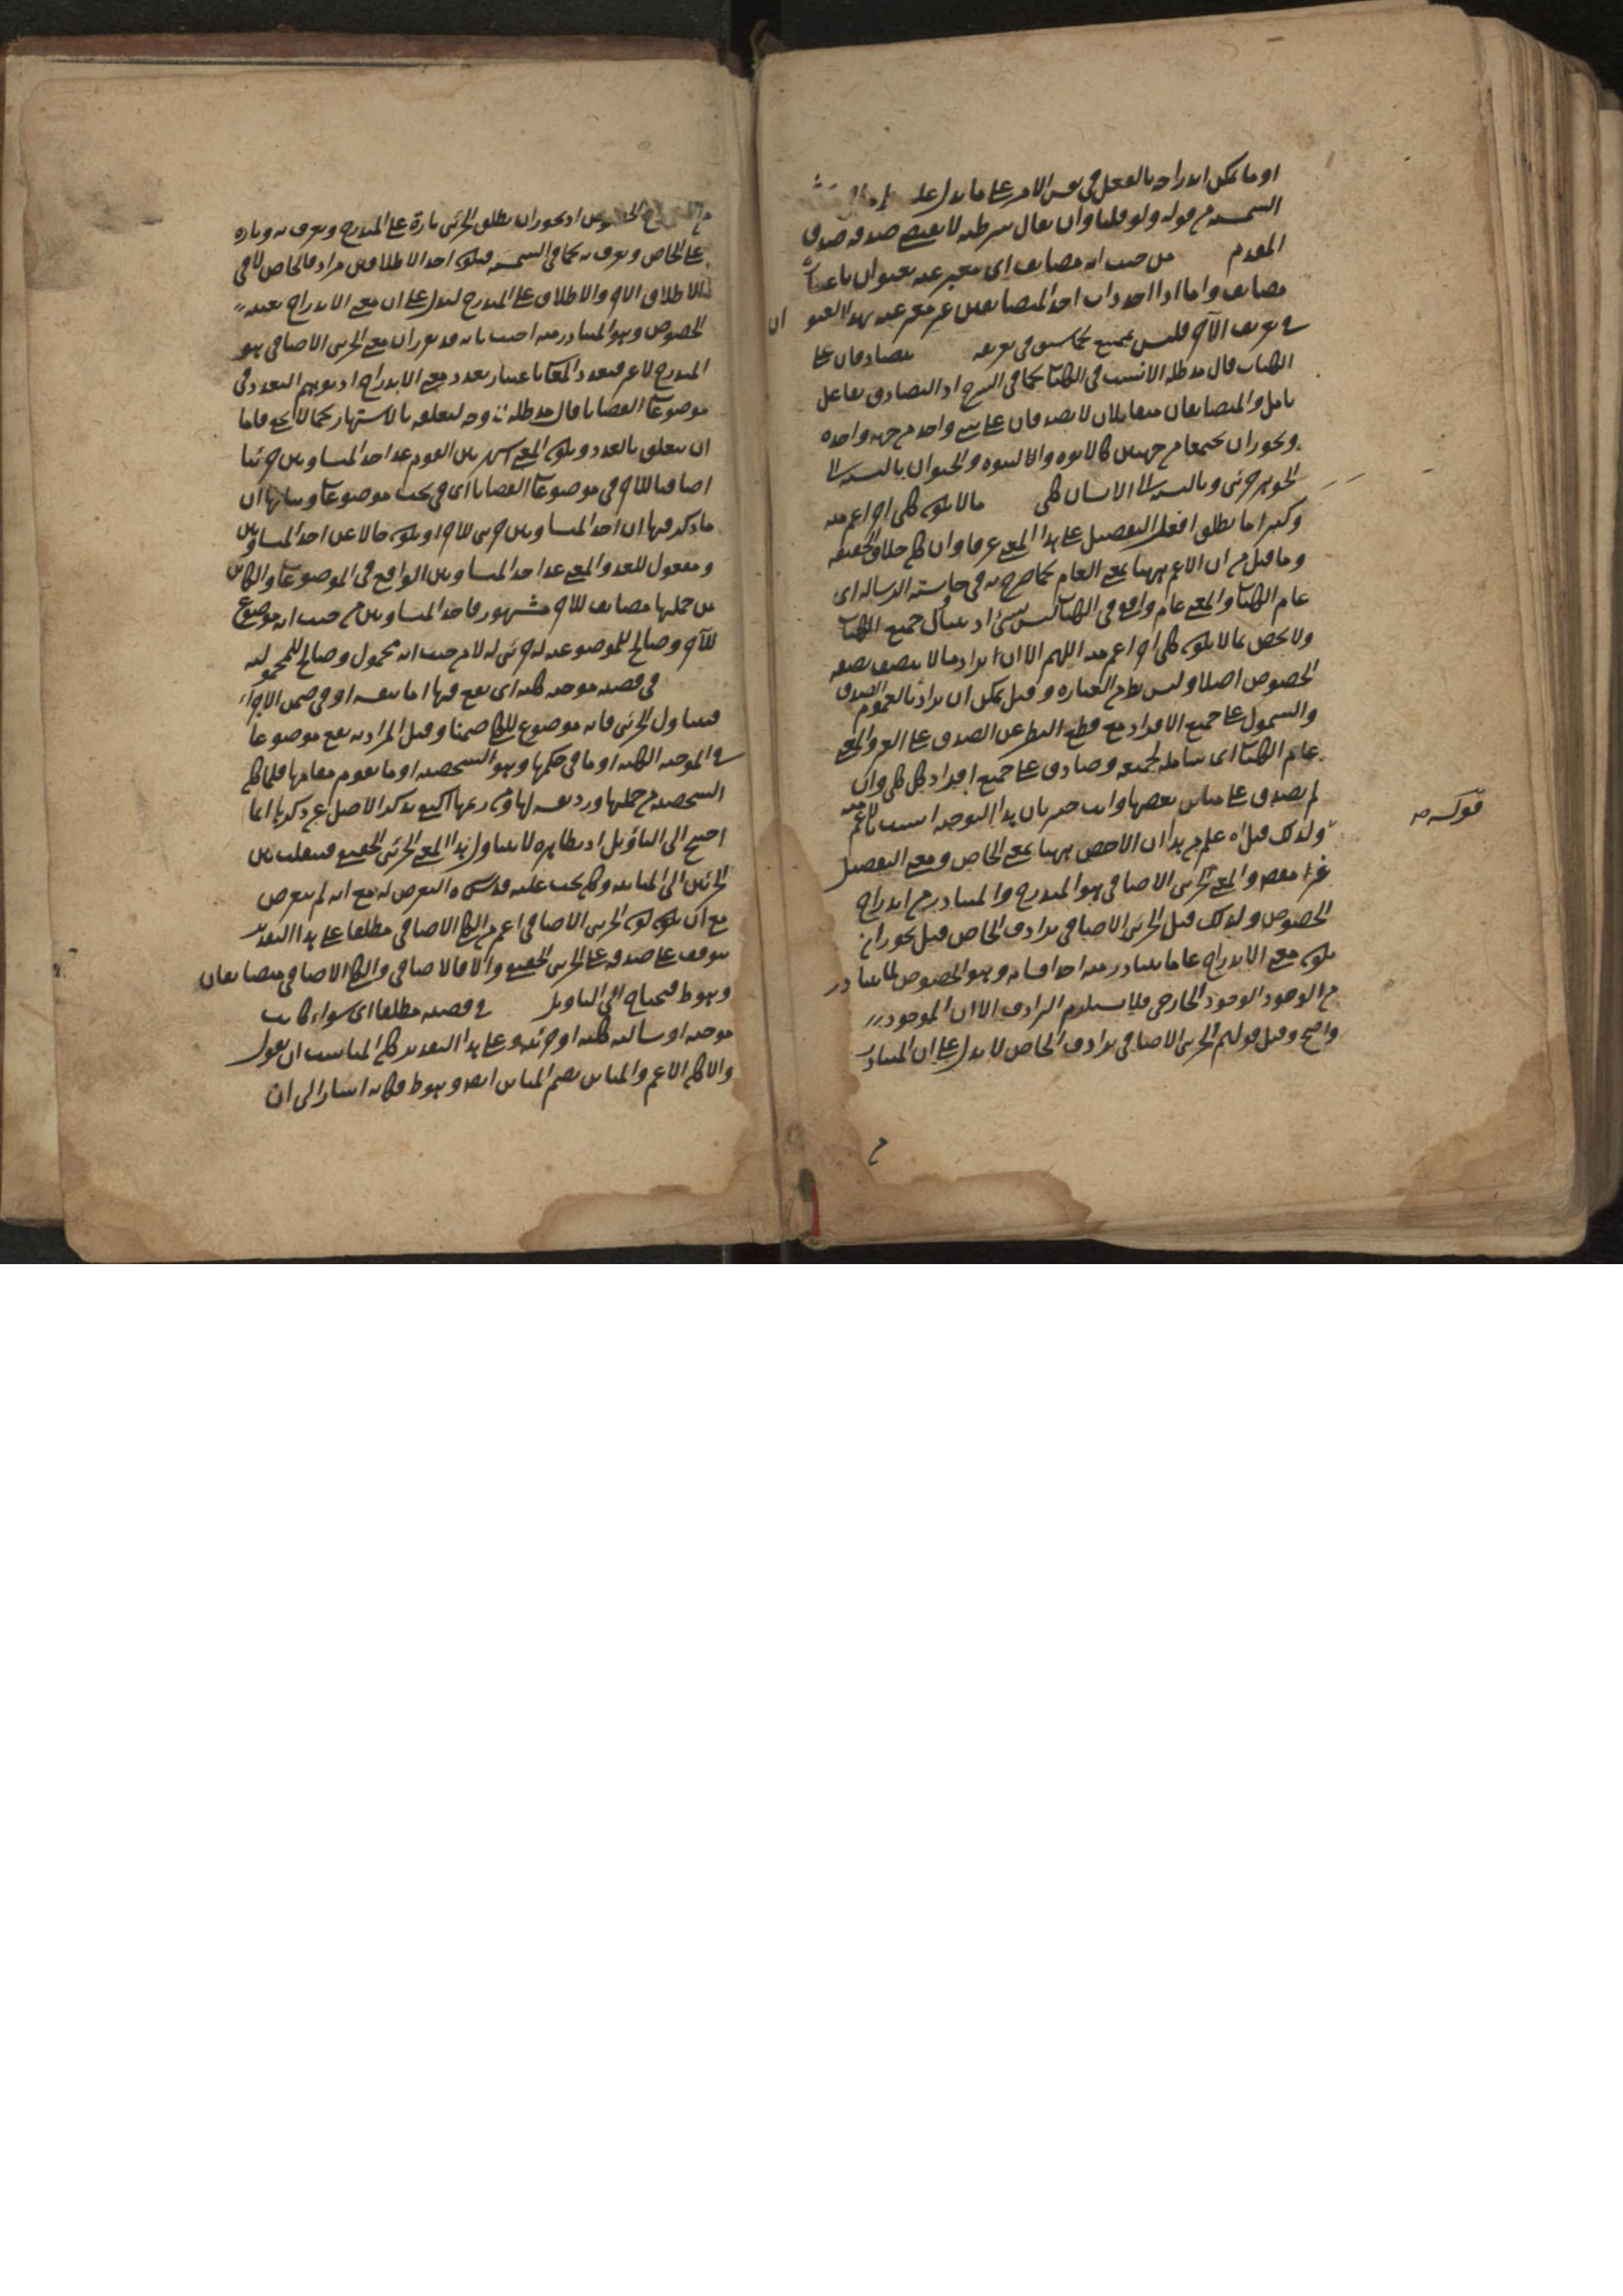 او ما يمكن اندراجه بالفعل في نفس الامر على ما يدل عليه
الشمسية من قوله ولو قلنا وان يقال شرطية لا يقتضي صدقه صدق
المقدم من حيث انه مضايف اي معبر عنه بعنوان باعتبار
مضايف واما اذا اخذ ذات احد المتضايفين غير معبر عنه بهذا العنوان
في تعريف الآخر فليس بممتنع كما سبق في تعريفه يتصادقان على
الكتاب قال مد ظله الانسب في الكتاب كما في الشرح اذ التصادق تفاعل
تامل والمتضايفان متقابلان لا يصدقان على شيء واحد من جهة واحدة
ويجوز ان يجتمعا من جهتين كالابوة والبنوة والحيوان بالنسبة الى
الجوهر جزئي وبالنسبة الى الانسان كلي ما لا يكون كلي اخر اعم منه
وكثيرا ما يطلق افعل التفضيل على هذا المعنى عرفا وان كان خلاف الحقيقة
وما قيل من ان الاعم ههنا بمعنى العام كما صرح به في حاشية الرسالة اي
عام الكليات والمعنى عام واقع في الكليات ليس بشيء اذ يتناول جميع الكليات
ولا يخص بما لا يكون كلي اخر اعم منه اللهم الا ان يراد ما لا يتصف بصفة
الخصوص اصلا وليس نظم العبارة وقيل يمكن ان يراد بالعموم الصدق
والشمول على جميع الافراد مع قطع النظر عن الصدق على الغير والمعنى
عام الكليات اي شاملة لجميعه وصادق على جميع افراد كل كلي وان
لم يصدق على مباين بعضها وانت خبير بان هذا التوجيه انسب بالاعم منه
قوله
ولذلك قيل اه علم من هذا ان الاخص ههنا بمعنى الخاص ومعنى التفضيل
غير مقصود والمعنى الجزئي الاضافي هو المندرج والمتبادر من اندراج
الخصوص ولذلك قيل الجزئي الاضافي يرادف الخاص قيل يجوز ان
يكون معنى الاندراج عاما يتبادر منه احد اقسامه وهو الخصوص كما يتبادر
من الوجود الوجود الخارجي فلا يستلزم الترادف الا ان الموجود
واضح وقيل قولهم الجزئي الاضافي يرادف الخاص لا يدل على ان المتبادر
م
من الاندراج الخصوص اذ يجوز ان يطلق الجزئي تارة على المندرج ويعرف به وتارة
على الخاص ويعرف به كما في الشمسية فيكون احد الاطلاقين مرادفا للخاص لا في
الاطلاق الاخر والاطلاق على المندرج ليدل على ان معنى الاندراج بعينه
الخصوص وهو المتبادر منه اجيب بانه قد تقرر ان معنى الجزئي الاضافي هو
المندرج لا غير فتعدد المعنى باعتبار تعدد معنى الاندراج اذ توهم التعدد في
موضوعات القضايا قال مد ظله وجه لتعلقه بالاشتهار كما لا يخفى فاما
ان يتعلق بالعدد ويكون المعنى اشتهر بين القوم عد احد المتساويين جزئيا
اضافيا للاخر في موضوعات القضايا اي في بحث موضوعات وبيانها ان
ما ذكر فيها ان احد المتساويين جزئي للاخر او يكون حالا عن احد المتساويين
ومفعول للعد والمعنى عد احد المتساويين الواقع في الموضوعات والكائن
من جملتها مضايف للاخر مشهور فاحد المتساويين من حيث انه موضوع
للآخر وصالح للموضوعية له جزئي له لا من حيث انه محمول وصالح للمحمولية
في قضية موجبة كلية اي يقع فيها اما بنفسه او في ضمن الاجزاء
فيتناول الجزئي فانه موضوع للكلي ضمنا وقيل المراد به يقع موضوعا
في الموجبة الكلية او ما في حكمها وهو الشخصية او ما يقوم مقامها فلما كان
الشخصية من جملتها ورديفه لها ومن رعمها اكتفي بذكر الاصل عن ذكرها انما
احتيج الى التأويل اذ بظاهره لا يتناول هذا المعنى الجزئي الحقيقي فينقلب بين
الجزئين الى المباينة وكان يجب عليه قدس سره التعرض له مع انه لم يتعرض
مع ان يكون كون الجزئي الاضافي اعم من الكلي الاضافي مطلقا على هذا التقدير
يتوقف على صدقه على الجزئي الحقيقي والا فالاضافي والكلي الاضافي متضايفان
وهو ظ فيحتاج الى التاويل في قضية مطلقا اي سواء كانت
موجبة او سالبة كلية او جزئية وعلى هذا التقدير كان المناسب ان يقول
والا كان الاعم والمباين بضم المباين ايضا وهو ظ فكانه اشار الى ان